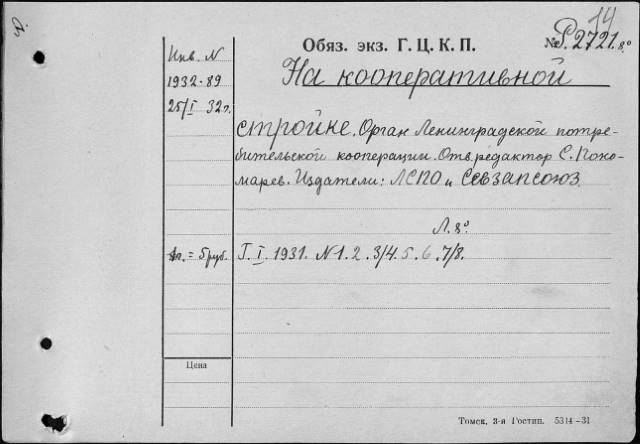 14
Обяз. экз. Г. Ц. К. П.
№ Р.2721. 8°
Инв. N
1932-89
25/I 32 г.
На кооперативной
стройке. Орган Ленинградской потре-
бительской кооперации. Отв. редактор С. Поно-
марев. Издатели: ЛСПО и Севзапсоюз.
Л. 8°
= 5 руб.
Г. I. 1931. N 1. 2. 3/4. 5. 6. 7/8.
Цена
Томск, 3-я Гостип. 5314-31